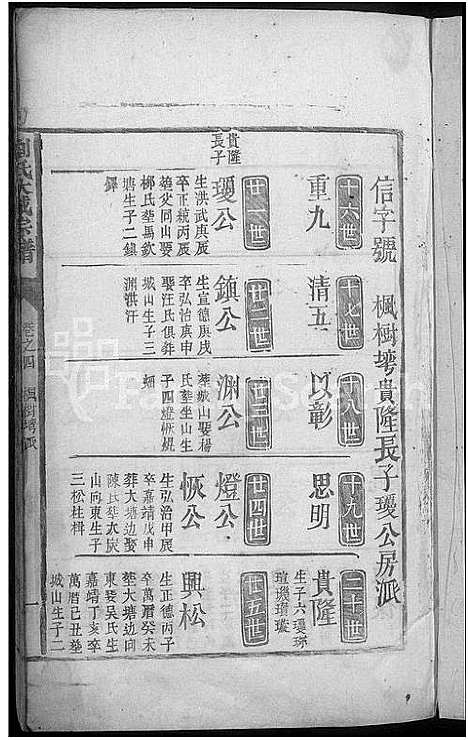 信字號　楓樹塆貴隆長子瓊公房派
十六世
重九
十七世
清五
十八世
以彰
十九世
思明
二十世
貴隆
生子六瓊琳
瑄璣璿璇
貴隆
長子
廿一世
瓊公
生洪武庚辰
卒正統丙辰
塟父同山娶
柳氏塟馬欽
塘生子二鎮
鐸
廿二世
鎮公
生宣德庚戌
卒弘治庚申
娶汪氏俱塟
城山生子三
渊洪汗
廿三世
渊公
塟城山娶楊
氏塟坐山生
子四燈恢焜
烟
廿四世
燈公
恢公
生弘治甲辰
卒嘉靖戊申
葬大塘边娶
陳氏塟太炭
山向東生子
三松柱楫
廿五世
興松
生正德丙子
卒萬曆癸未
塟大塘边向
東娶吴氏生
嘉靖丁亥卒
萬曆己丑塟
城山生子二
氏大成宗譜
卷之四
楓樹塆派
一